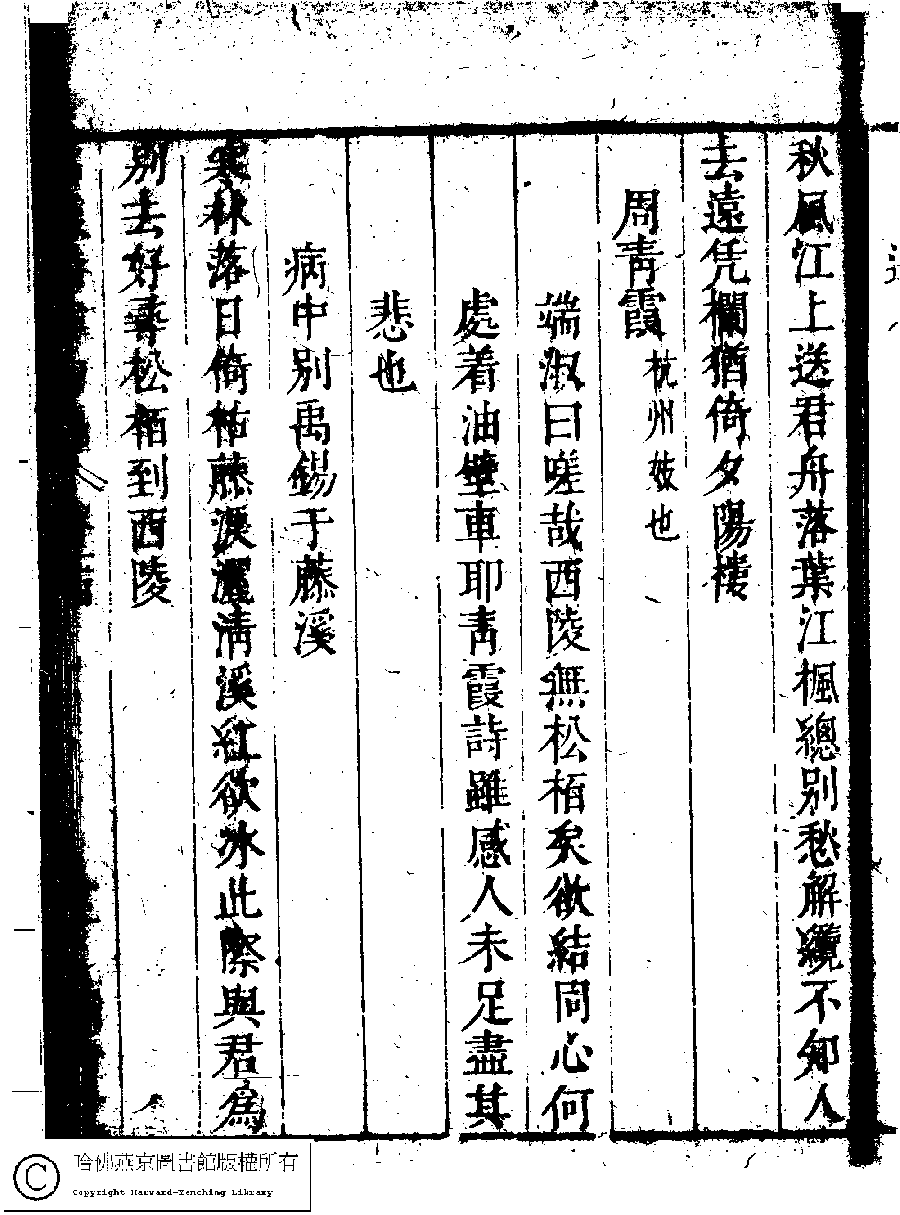 秋風江上送君舟落葉江楓總別愁解纜不知人
去遠凭欄猶倚夕陽樓
周青霞 杭州妓也
端淑曰嗟哉西陵無松栢矣欲結同心何
處着油壁車耶青霞詩雖感人未足盡其
悲也
病中別禹錫于藤溪
寒林落日倚枯藤淚灑清溪紅欲冰此際與君為
別去好尋松栢到西陵
哈佛燕京圖書館版權所有
Copyright Harvard-Yenching Library